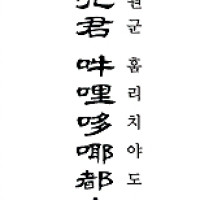 원군 훔리치야도
君 吽哩哆㖿都